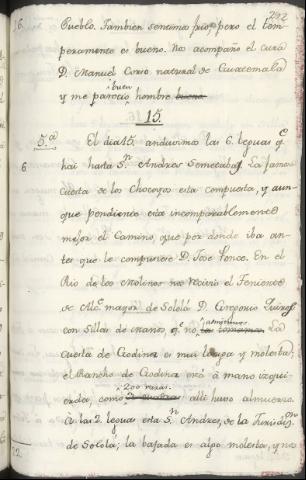 292
16.
Pueblo. Tambien sentimos frio, pero el tem-
peramento es bueno. Nos acompaño el cura
D. Manuel Corzo natural de Guatemala
y me pareció buen hombre bueno.
15.
5.a
El dia 15. anduvimos las 6. leguas q.e
6
hai hasta S.n Andres Semetabaj. La famosa
cuesta de los Chocoyos esta compuesta, y aun-
que pendiente está incomparablemente
mejor el Camino, que por donde iba an-
tes que le compusiere D. Jose Ponce. En el
Rio de los Molinos nos recivió el Teniente
de Alc.e mayor de Sololá D. Gregorio
con Sillas de manos, q.e no La
cuesta de Godinez es mui larga y molesta;
el Rancho de Godinez está á mano izqui-
erda, como 200 varas. allí huvo almuerzo.
A las 2. leguas está S.n Andres, de la Jurisdi.on
de Sololá; la bajada es algo molesta, y no
12.